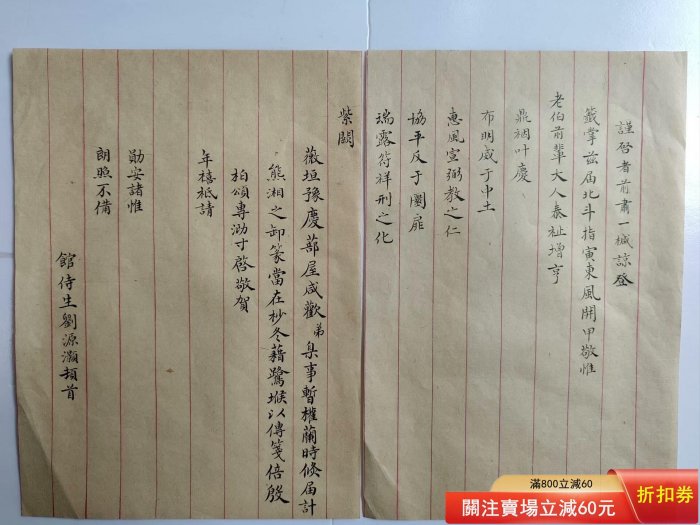 謹啓者前肅一械諒登
籤掌茲届北斗指寅東風開甲敬惟
老伯前輩大人泰祉增亨
鼎祻叶慶
布明威于中土
惠風宣弼教之仁
協平反于圜扉
瑞露符祥刑之化
紫闕
薇垣豫慶蔀屋咸歡弟臬事暫權蘭時倏届計
熊湘之卸篆當在杪冬藉鷺堠以傳箋倍殷
柏頌專泐寸啓敬賀
年禧祗請
勛安諸惟
朗照不備
館侍生劉源灝頓首
滿800立減60
關注賣場立減60元
折扣券